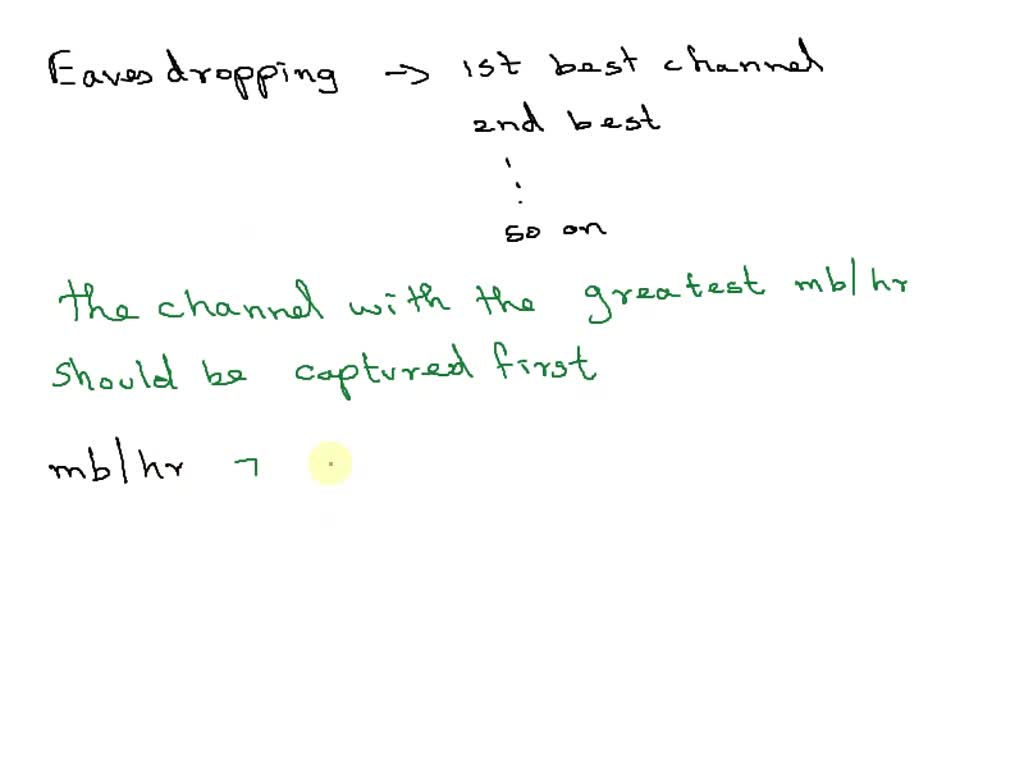 Eavesdropping → 1st best channel
2nd best
⋮
so on
The channel with the greatest mb/hr
should be captured first
mb/hr ¬